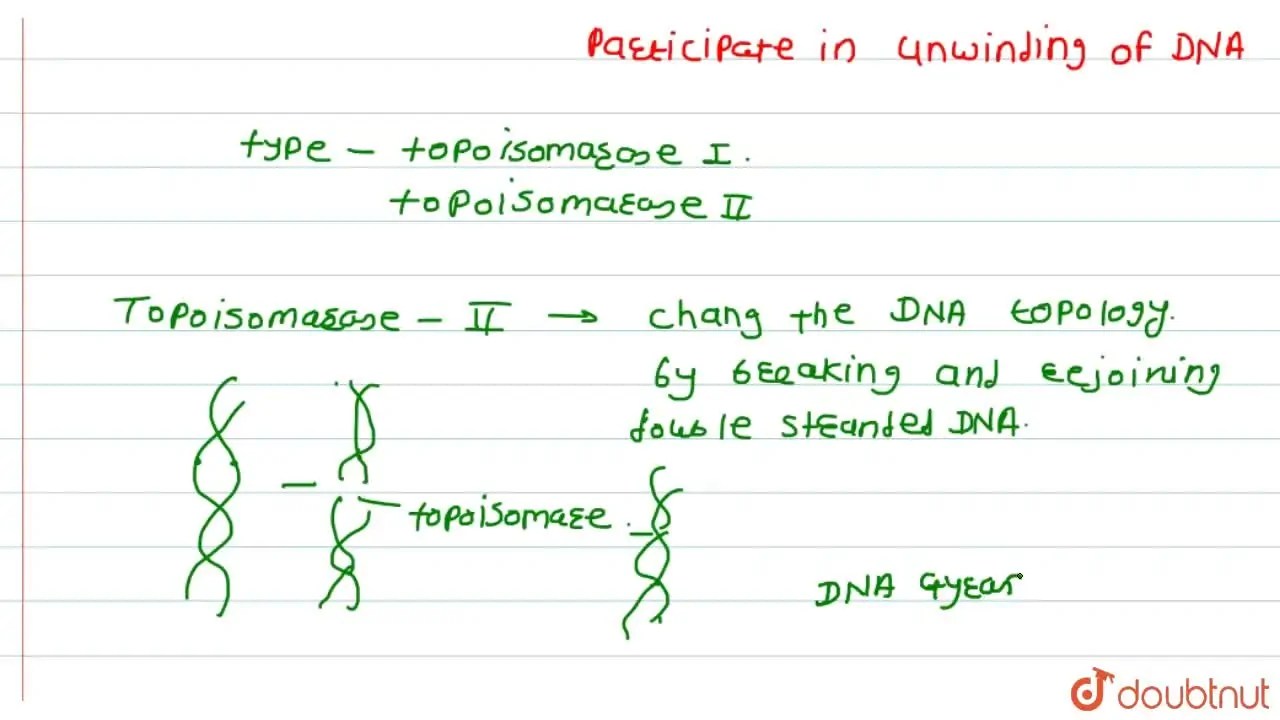 Participate in unwinding of DNA
type - topoisomerase I.
topoisomerase II
Topoisomerase - II → chang the DNA topology.
by breaking and rejoining
double stranded DNA.
topoisomare.
DNA Gyras
doubtnut